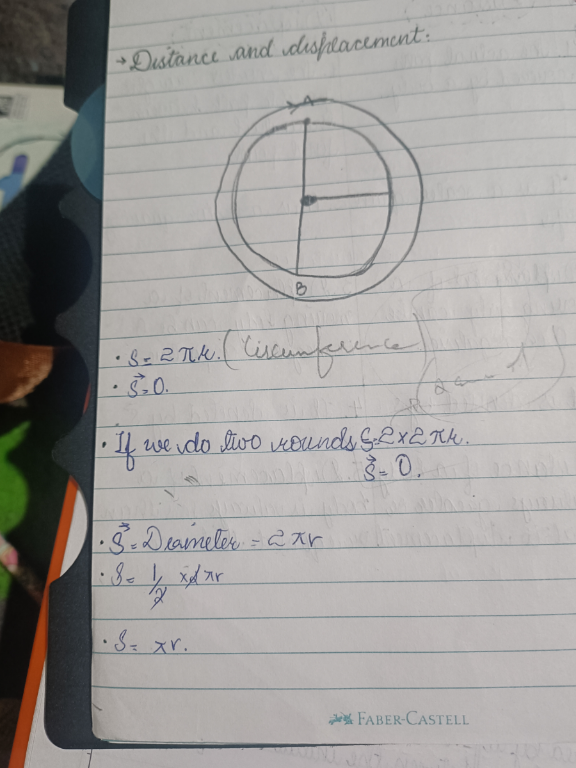 → Distance and displacement:
A
B
• S = 2πr. (Circumference)
• S⃗=0.
• If we do two rounds S=2×2πr.
S⃗= 0.
• S⃗=Diameter = 2πr
• S= 1/2 ×2πr
• S= πr.
FABER-CASTELL